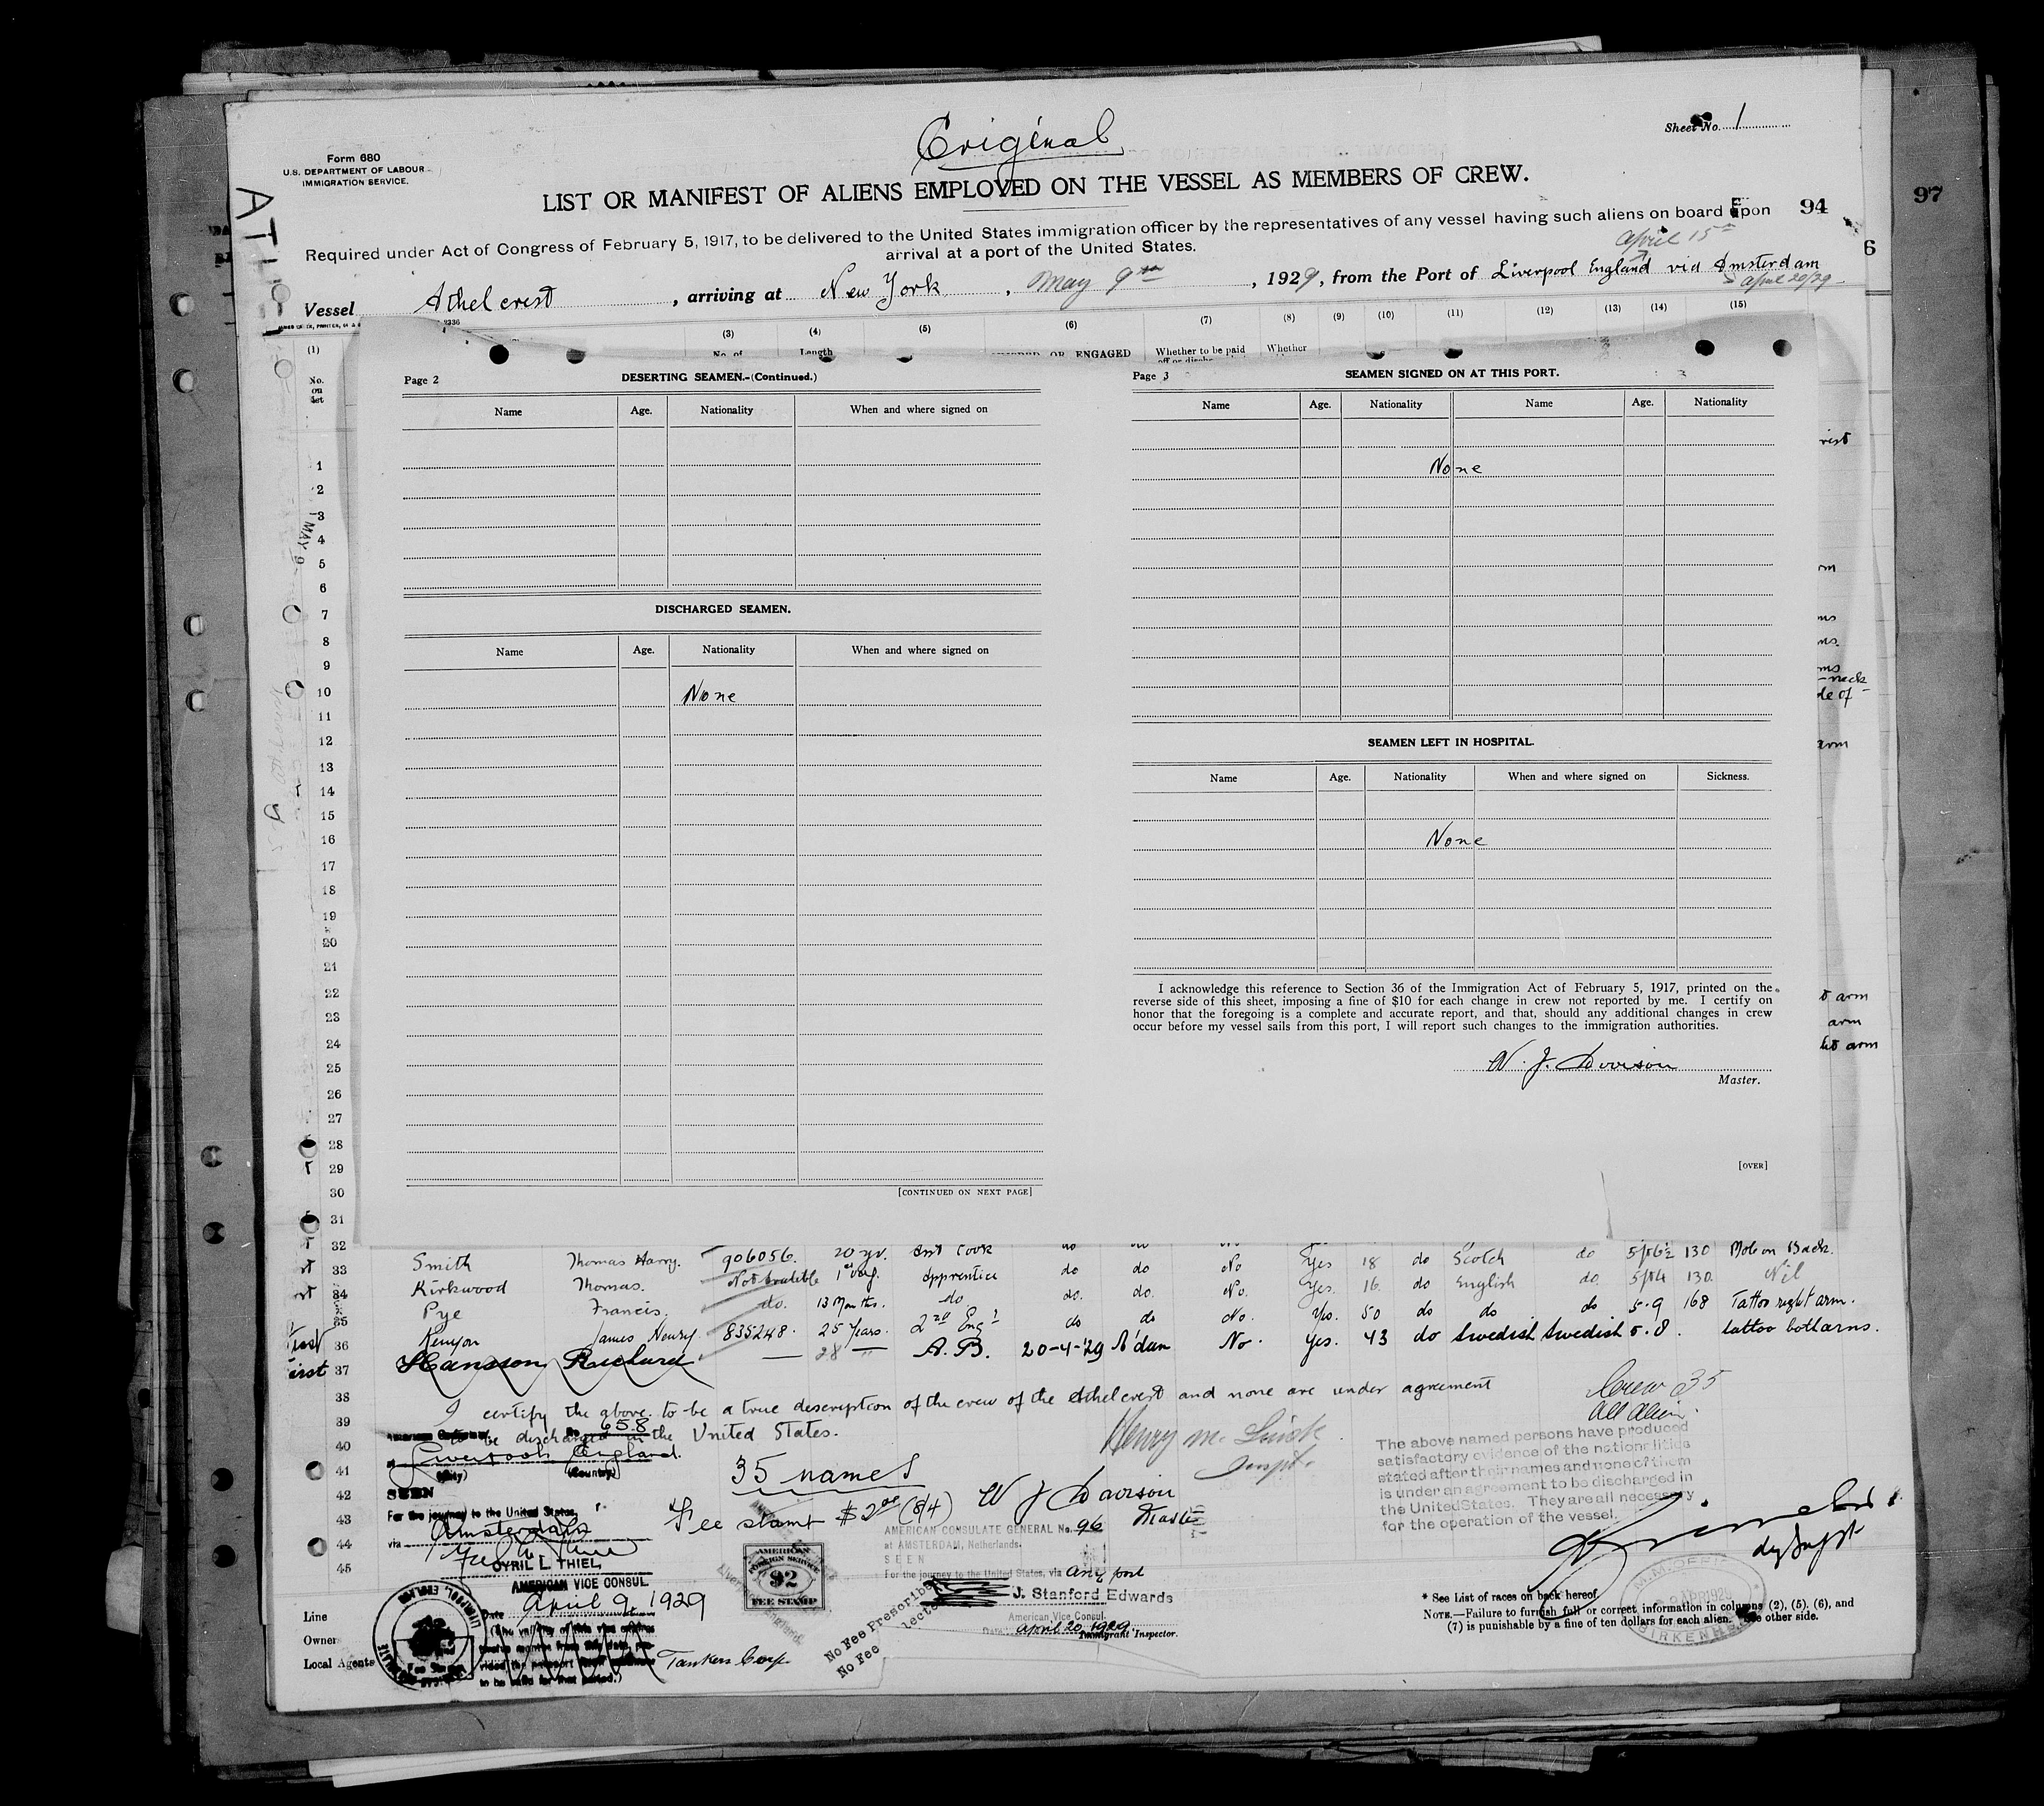 Original
Sheet No. 1
Form 680
U.S. DEPARTMENT OF LABOUR
IMMIGRATION SERVICE.
LIST OR MANIFEST OF ALIENS EMPLOYED ON THE VESSEL AS MEMBERS OF CREW.
94
97
6
Required under Act of Congress of February 5, 1917, to be delivered to the United States immigration officer by the representatives of any vessel having such aliens on board upon
arrival at a port of the United States.
April 15th
Vessel Athelcrest, arriving at New York, May 9th, 1929, from the Port of Liverpool England via Amsterdam
April 20/29
2336
(1) (3) (4) (5) (6) (7) (8) (9) (10) (11) (12) (13) (14) (15)
No. of Length OR ENGAGED Whether to be paid Whether
No. on list
Page 2 DESERTING SEAMEN.-(Continued.)
Name Age. Nationality When and where signed on
DISCHARGED SEAMEN.
Name Age. Nationality When and where signed on
None
[CONTINUED ON NEXT PAGE]
Page 3 SEAMEN SIGNED ON AT THIS PORT.
Name Age. Nationality Name Age. Nationality
None
SEAMEN LEFT IN HOSPITAL.
Name Age. Nationality When and where signed on Sickness.
None
I acknowledge this reference to Section 36 of the Immigration Act of February 5, 1917, printed on the
reverse side of this sheet, imposing a fine of $10 for each change in crew not reported by me. I certify on
honor that the foregoing is a complete and accurate report, and that, should any additional changes in crew
occur before my vessel sails from this port, I will report such changes to the immigration authorities.
W. J. Davison
Master.
[OVER]
1
2
3
4
5
6
7
8
9
10
11
12
13
14
15
16
17
18
19
20
21
22
23
24
25
26
27
28
29
30
31
32
33
34
35
36
37
38
39
40
41
42
43
44
45
MAY 9
neck
arm
arm
arm
arm
Smith Thomas Harry. 906056. 20 yr. Asst Cook do do No Yes 18 do Scotch do 5/6½ 130 Mole on Back.
Kirkwood Thomas. Not available 1st voy. Apprentice do do No. Yes. 16 do English do 5/4 130 Nil
Pye Francis. do. 13 Months. do do. do. No. Yes. 50 do do do 5-9 168 Tattoo right arm.
Kenyon James Henry. 835248. 25 Years. 2nd Engr do do No. Yes. 43 do Swedish Swedish 5-8. tattoo both arms.
Hansson Richard — 28 " A.B. 20-4-29 A'dam
I certify the above to be a true description of the crew of the Athelcrest and none are under agreement
to be discharged in the United States.
No. 658
Liverpool England
(City) (Country)
SEEN
For the journey to the United States,
via Amsterdam
CYRIL L. THIEL,
AMERICAN VICE CONSUL
Date April 9, 1929
to be valid for that period.)
35 names
Fee stamt $2.00 (8/4)
W J Davison
Master
Crew 35
All Alien.
The above named persons have produced
satisfactory evidence of the nationalities
stated after their names and none of them
is under an agreement to be discharged in
the United States. They are all necessary
for the operation of the vessel.
AMERICAN
FOREIGN SERVICE
$2
FEE STAMP
AMERICAN CONSULATE GENERAL No. 96
at AMSTERDAM, Netherlands.
SEEN
For the journey to the United States, via any port
J. Stanford Edwards
American Vice Consul.
Date: April 20, 1929.
Immigrant Inspector.
No Fee Prescribed
No Fee
Line
Owners
Local Agents Tankers Corp.
* See List of races on back hereof.
NOTE.—Failure to furnish full or correct information in columns (2), (5), (6), and
(7) is punishable by a fine of ten dollars for each alien. See other side.
M.M. OFFICE
BIRKENHEAD